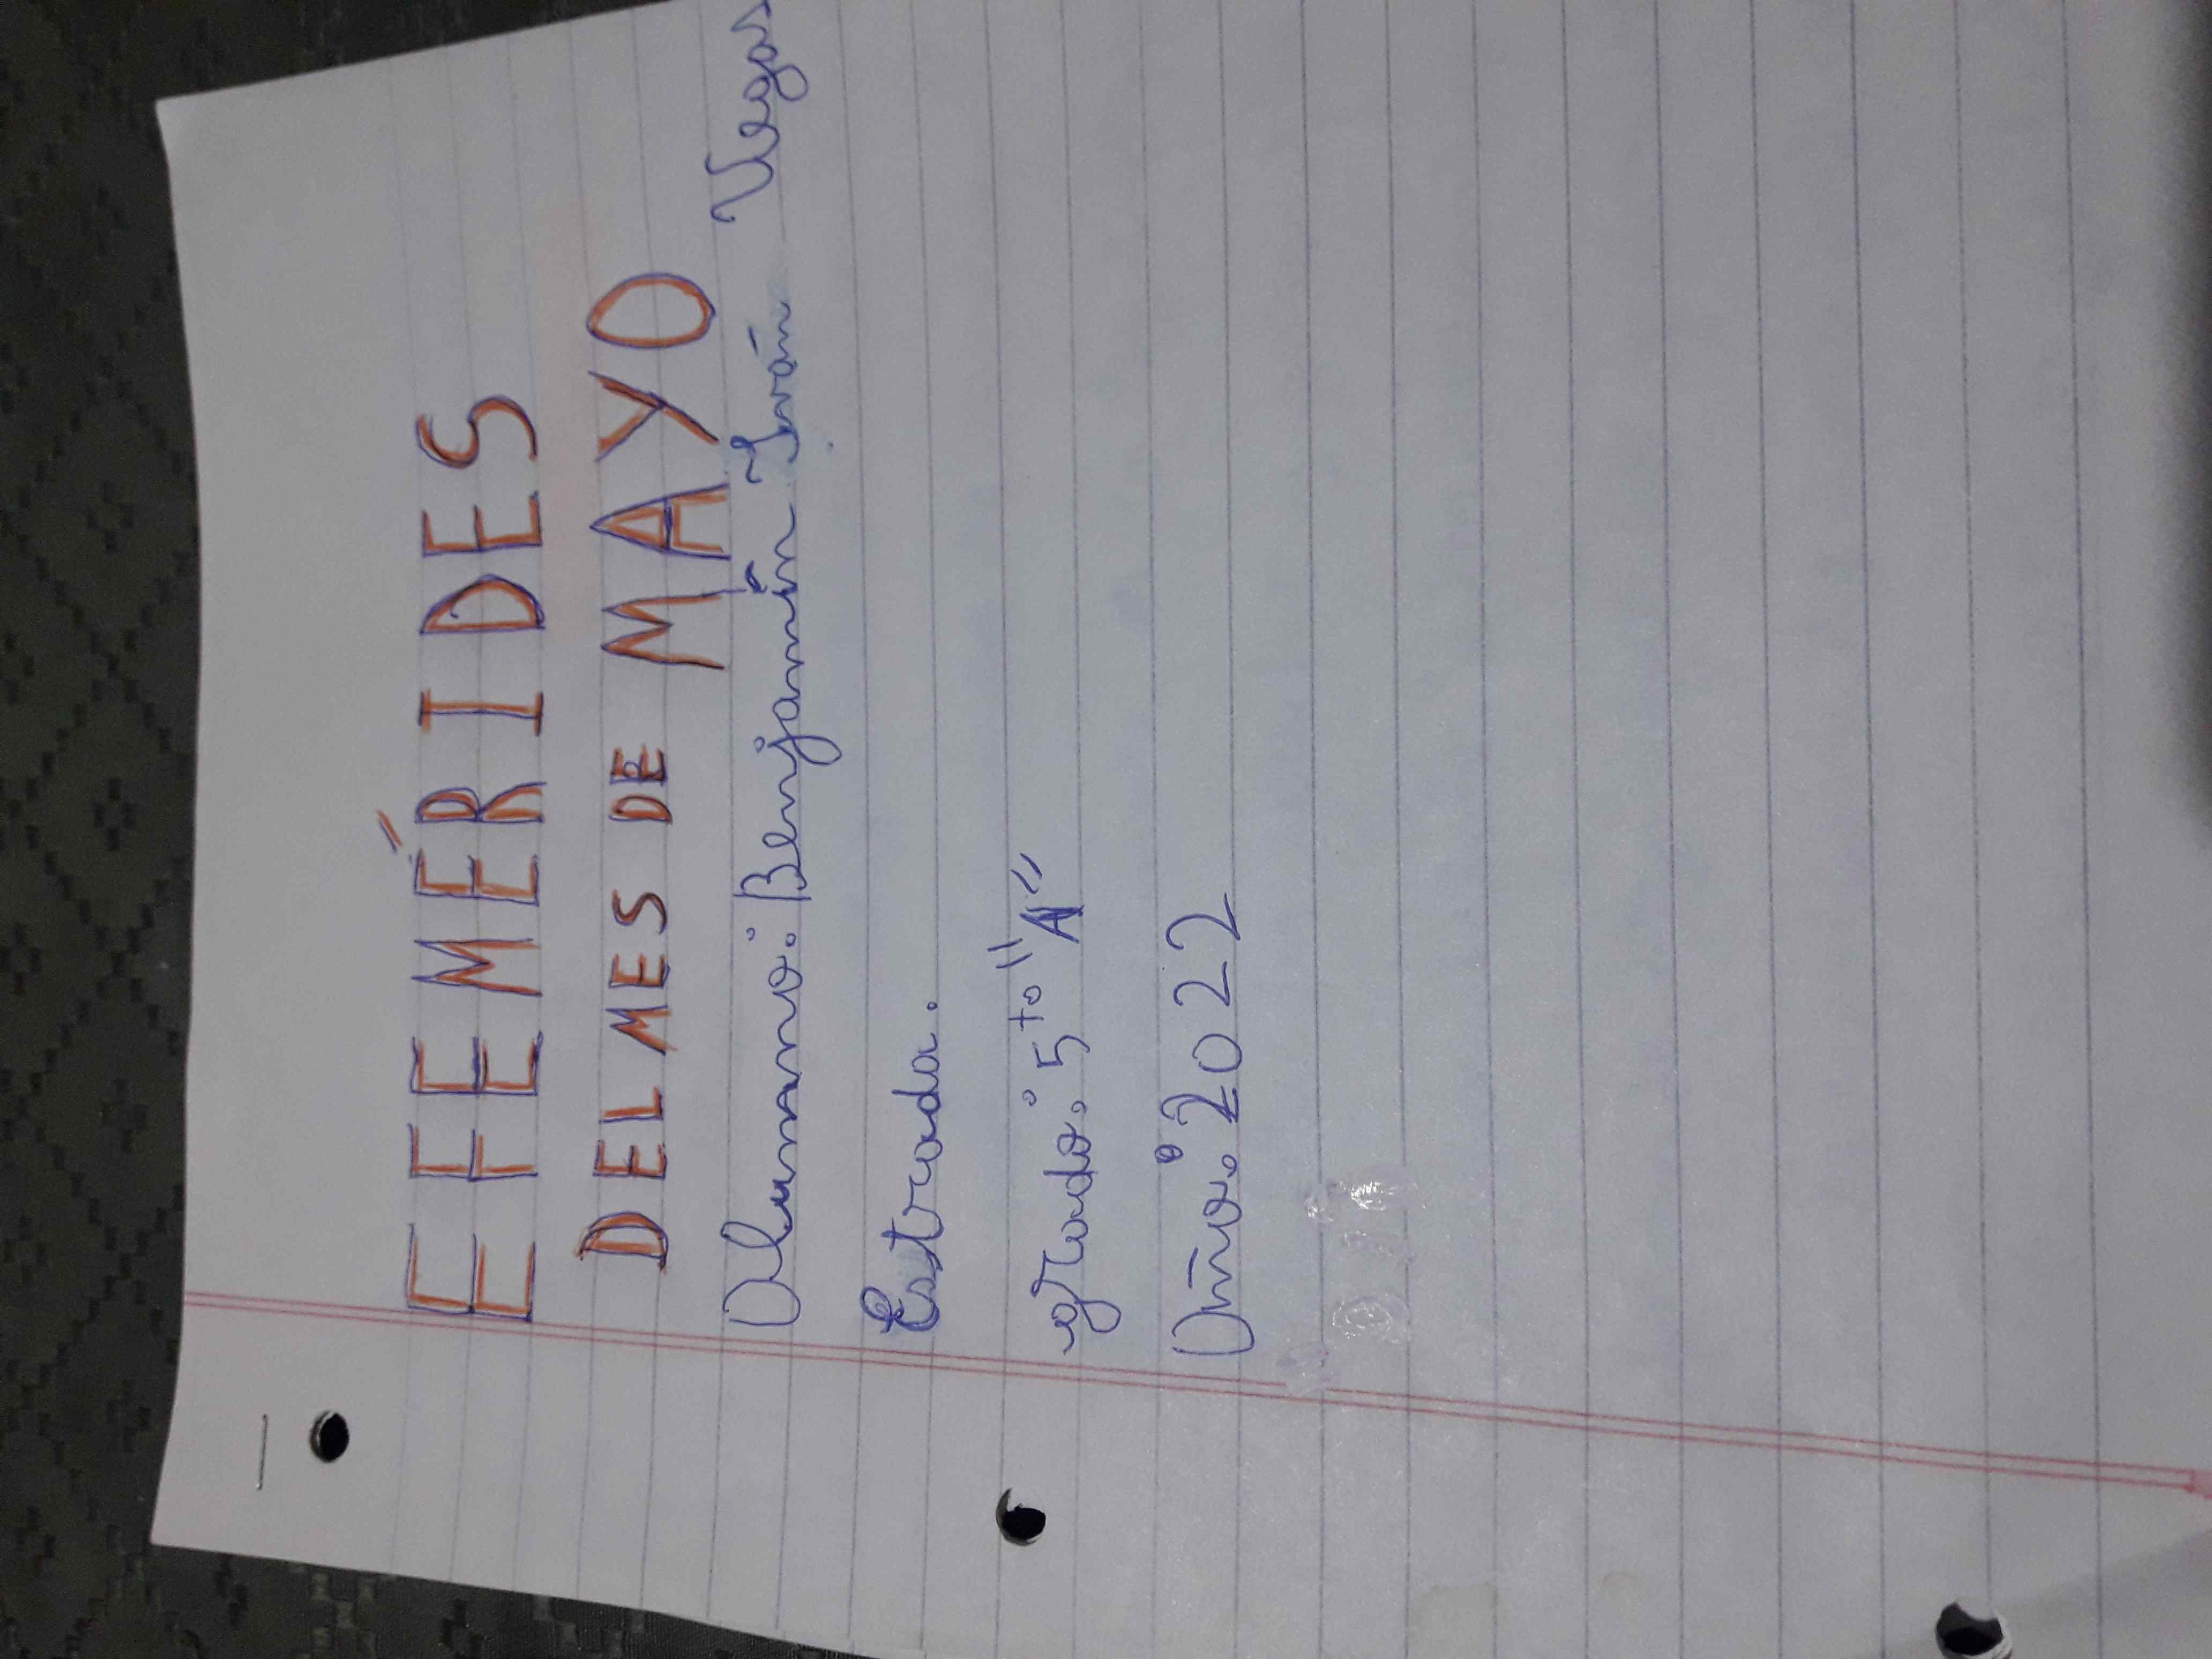 EFEMÉRIDES
DEL MES DE MAYO
Alumno: Benjamín Iván Vegas
Estrada.
grado: 5to "A"
Año: 2022